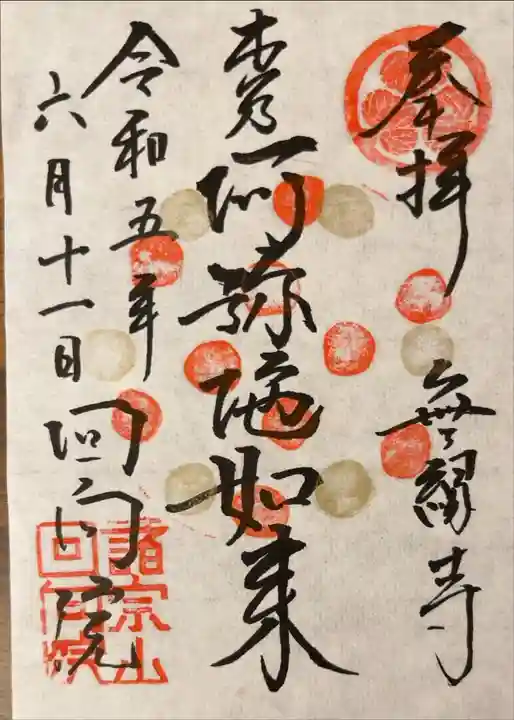 奉拝
無縁寺
本尊阿弥陀如来
令和五年
六月十一日
回向院
諸宗山
回向院